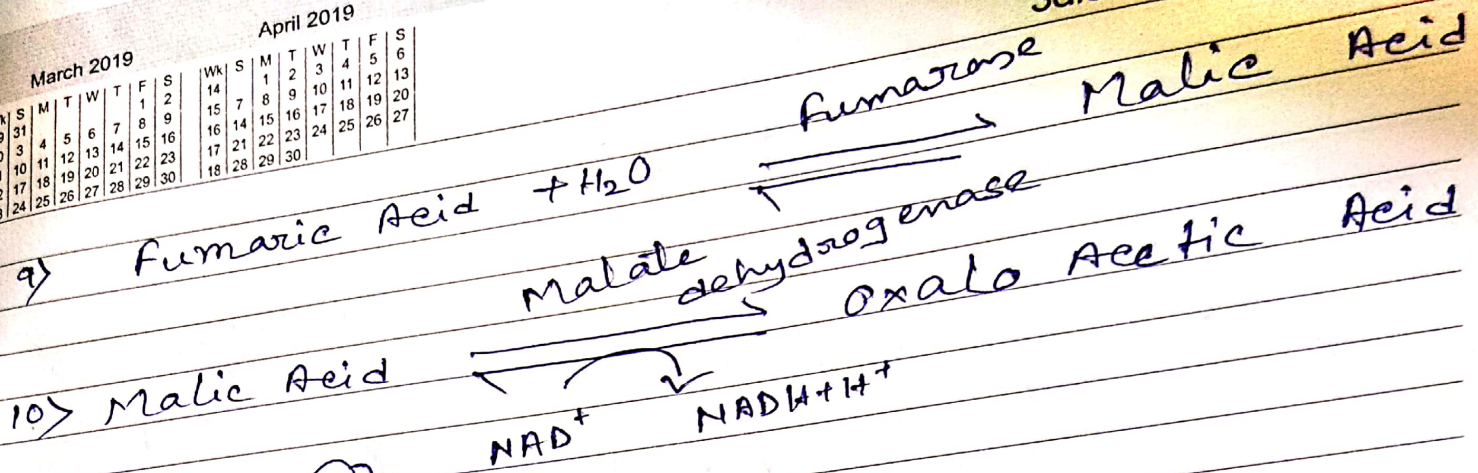 March 2019
S M T W T F S
31 1 2
3 4 5 6 7 8 9
10 11 12 13 14 15 16
17 18 19 20 21 22 23
24 25 26 27 28 29 30
April 2019
Wk S M T W T F S
14 1 2 3 4 5 6
15 7 8 9 10 11 12 13
16 14 15 16 17 18 19 20
17 21 22 23 24 25 26 27
18 28 29 30
9) Fumaric Acid + H₂O ⇌ Malic Acid
Fumarase
Malate
dehydrogenase
10) Malic Acid ⇌ Oxalo Acetic Acid
NAD⁺ NADH+H⁺